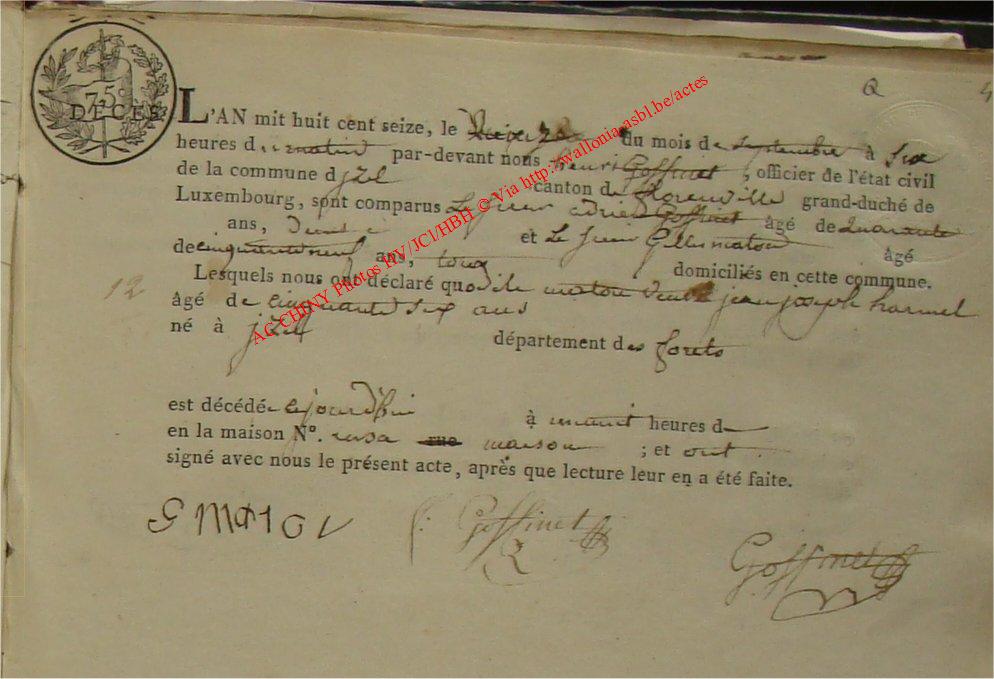 75
DÉCÈS
Q
4
L'AN mit huit cent seize, le quinze du mois de septembre à six
heures du matin par-devant nous henri Goffinet, officier de l'état civil
de la commune d jzel canton de florenville grand-duché de
Luxembourg, sont comparus Le sieur Goffinet âgé de quarante
ans, et Le sieur maton âgé
de cinquante neuf ans, tous domiciliés en cette commune.
12
Lesquels nous ont déclaré que maton veuve jean joseph harmel
âgé de cinquante six ans
né à jzel département des forets
est décédé cejourd'hui à minuit heures d
en la maison N°. rue maison ; et ont
signé avec nous le présent acte, après que lecture leur en a été faite.
G MATON
Goffinet
Goffinet
AC CHINY Photos RV/JCl/HBH © Via http://wallonia-asbl.be/actes